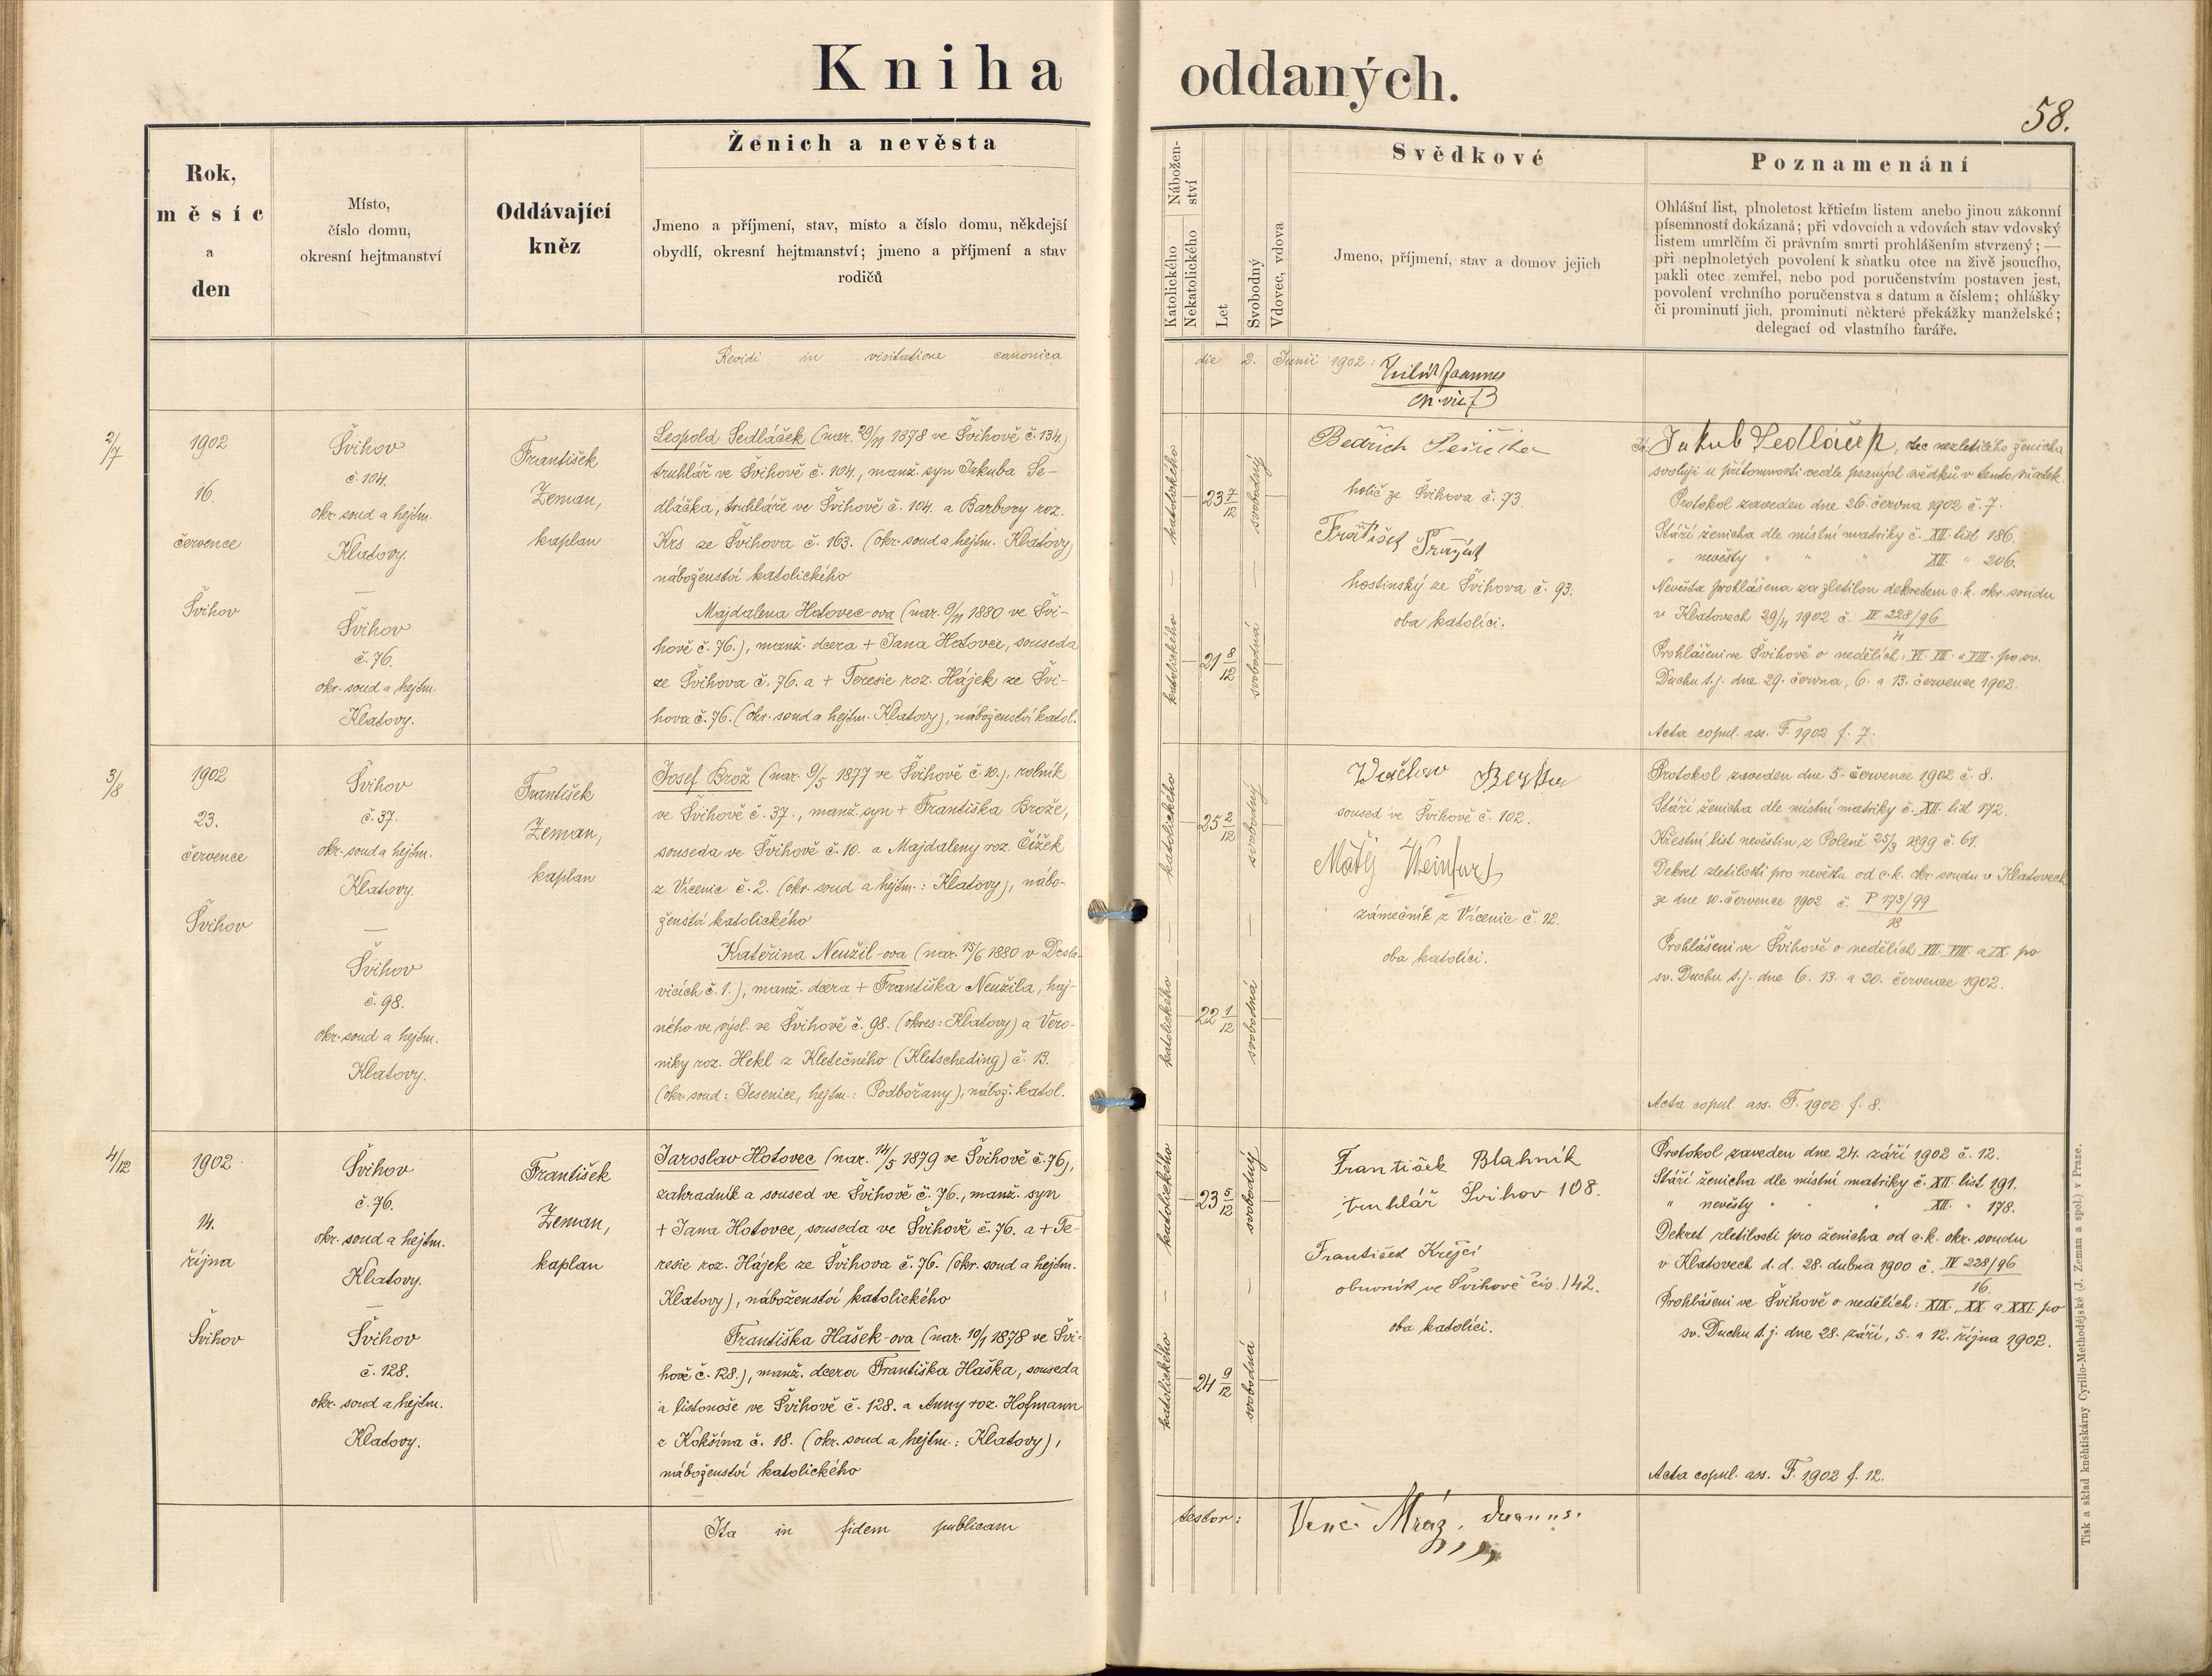 Kniha oddaných.
58.
Rok,
měsíc
a
den
Místo,
číslo domu,
okresní hejtmanství
Oddávající
kněz
Ženich a nevěsta
Jmeno a příjmení, stav, místo a číslo domu, někdejší
obydlí, okresní hejtmanství; jmeno a příjmení a stav
rodičů
Nábožen-
ství
Katolického
Nekatolického
Let
Svobodný
Vdovec, vdova
Svědkové
Jmeno, příjmení, stav a domov jejich
Poznamenání
Ohlášní list, plnoletost křticím listem anebo jinou zákonní
písemností dokázaná; při vdovcích a vdovách stav vdovský
listem umrlčím či právním smrti prohlášením stvrzený; —
při neplnoletých povolení k sňatku otce na živě jsoucího,
pakli otec zemřel, nebo pod poručenstvím postaven jest,
povolení vrchního poručenstva s datum a číslem; ohlášky
či prominutí jich, prominutí některé překážky manželské;
delegací od vlastního faráře.
Revidi in visitatione canonica die 2. Junii 1902:
Joannes
2/7
1902
16.
července
Švihov
Švihov
č. 104.
okr. soud a hejtm.
Klatovy.
—
Švihov
č. 76.
okr. soud a hejtm.
Klatovy.
František
Zeman,
kaplan
Leopold Sedláček (nar. 29/11 1878 ve Švihově č. 134.)
truhlář ve Švihově č. 104., manž. syn Jakuba Se-
dláčka, truhláře ve Švihově č. 104. a Barbory roz.
Krs ze Švihova č. 163. (okr. soud a hejtm. Klatovy)
náboženství katolického
Majdalena Hotovec-ova (nar. 9/11 1880 ve Švi-
hově č. 76.), manž. dcera + Jana Hotovce, souseda
ze Švihova č. 76. a + Teresie roz. Hájek ze Švi-
hova č. 76. (okr. soud a hejtm. Klatovy), náboženství katol.
katolického — katolického
23 7/12
21 8/12
svobodný — svobodná
Bedřich
holič ze Švihova č. 73.
hostinský ze Švihova č. 93.
oba katolíci.
Já Jakub Sedláček, otec nezletilého ženicha
svoluji u přítomnosti vedle psaných svědků v tento sňatek.
Protokol zaveden dne 26. června 1902 č. 7.
Stáří ženicha dle místní matriky č. XII. list 186.
" nevěsty " " " XII. " 206.
Nevěsta prohlášena za zletilou dekretem c. k. okr. soudu
v Klatovech 29/4 1902 č. IV 228/96
Prohlášeni ve Švihově o nedělích: VI. VII. a VIII. po sv.
Duchu t. j. dne 29. června, 6. a 13. července 1902.
Acta copul. ass. F. 1902 f. 7.
3/8
1902
23.
července
Švihov
Švihov
č. 37.
okr. soud a hejtm.
Klatovy.
—
Švihov
č. 98.
okr. soud a hejtm.
Klatovy.
František
Zeman,
kaplan
Josef Brož (nar. 9/5 1877 ve Švihově č. 10.), rolník
ve Švihově č. 37., manž. syn + Františka Brože,
souseda ve Švihově č. 10. a Majdaleny roz. Čížek
z Vícenic č. 2. (okr. soud a hejtm.: Klatovy), nábo-
ženství katolického
Kateřina Neužil-ova (nar. 15/6 1880 v Desla-
vicích č. 1.), manž. dcera + Františka Neužila, haj-
ného ve výsl. ve Švihově č. 98. (okres: Klatovy) a Vero-
niky roz. Hekl z Kletečného (Kletscheding) č. 13.
(okr. soud: Jesenice, hejtm.: Podbořany), nábož. katol.
katolického — katolického
25 2/12
22 1/12
svobodný — svobodná
soused ve Švihově č. 102.
Matěj Weinfurt
zámečník z Vícenic č. 12.
oba katolíci.
Protokol zaveden dne 5. července 1902 č. 8.
Stáří ženicha dle místní matriky č. XII. list 172.
Křestní list nevěstin z Poleně 25/3 1899 č. 61.
Dekret zletilosti pro nevěstu od c. k. okr. soudu v Klatovech
ze dne 10. července 1902 č. P 173/99
18
Prohlášeni ve Švihově o nedělích VII. VIII. a IX. po
sv. Duchu t. j. dne 6. 13. a 20. července 1902.
Acta copul. ass. F. 1902 f. 8.
4/12
1902
14.
října
Švihov
Švihov
č. 76.
okr. soud a hejtm.
Klatovy.
—
Švihov
č. 128.
okr. soud a hejtm.
Klatovy.
František
Zeman,
kaplan
Jaroslav Hotovec (nar. 14/5 1879 ve Švihově č. 76),
zahradník a soused ve Švihově č. 76., manž. syn
+ Jana Hotovce, souseda ve Švihově č. 76. a + Te-
resie roz. Hájek ze Švihova č. 76. (okr. soud a hejtm.
Klatovy), náboženství katolického
Františka Hašek-ova (nar. 10/1 1878 ve Švi-
hově č. 128.), manž. dcera Františka Haška, souseda
a listonoše ve Švihově č. 128. a Anny roz. Hofmann
z Kokšína č. 18. (okr. soud a hejtm.: Klatovy),
náboženství katolického
katolického — katolického
23 5/12
24 9/12
svobodný — svobodná
František Blahník
truhlář Švihov 108.
František Krejčí
obuvník ve Švihově čís. 142.
oba katolíci.
Protokol zaveden dne 24. září 1902 č. 12.
Stáří ženicha dle místní matriky č. XII. list. 191.
" nevěsty " " " XII. " 178.
Dekret zletilosti pro ženicha od c. k. okr. soudu
v Klatovech d. d. 28. dubna 1900 č. IV 228/96
16.
Prohlášeni ve Švihově o nedělích: XIX., XX. a XXI. po
sv. Duchu t. j. dne 28. září, 5. a 12. října 1902.
Acta copul. ass. F. 1902 f. 12.
Ita in fidem publicam testor:
Venc. Mráz,
Tisk a sklad kněhtiskárny Cyrillo-Methodějské (J. Zeman a spol.) v Praze.